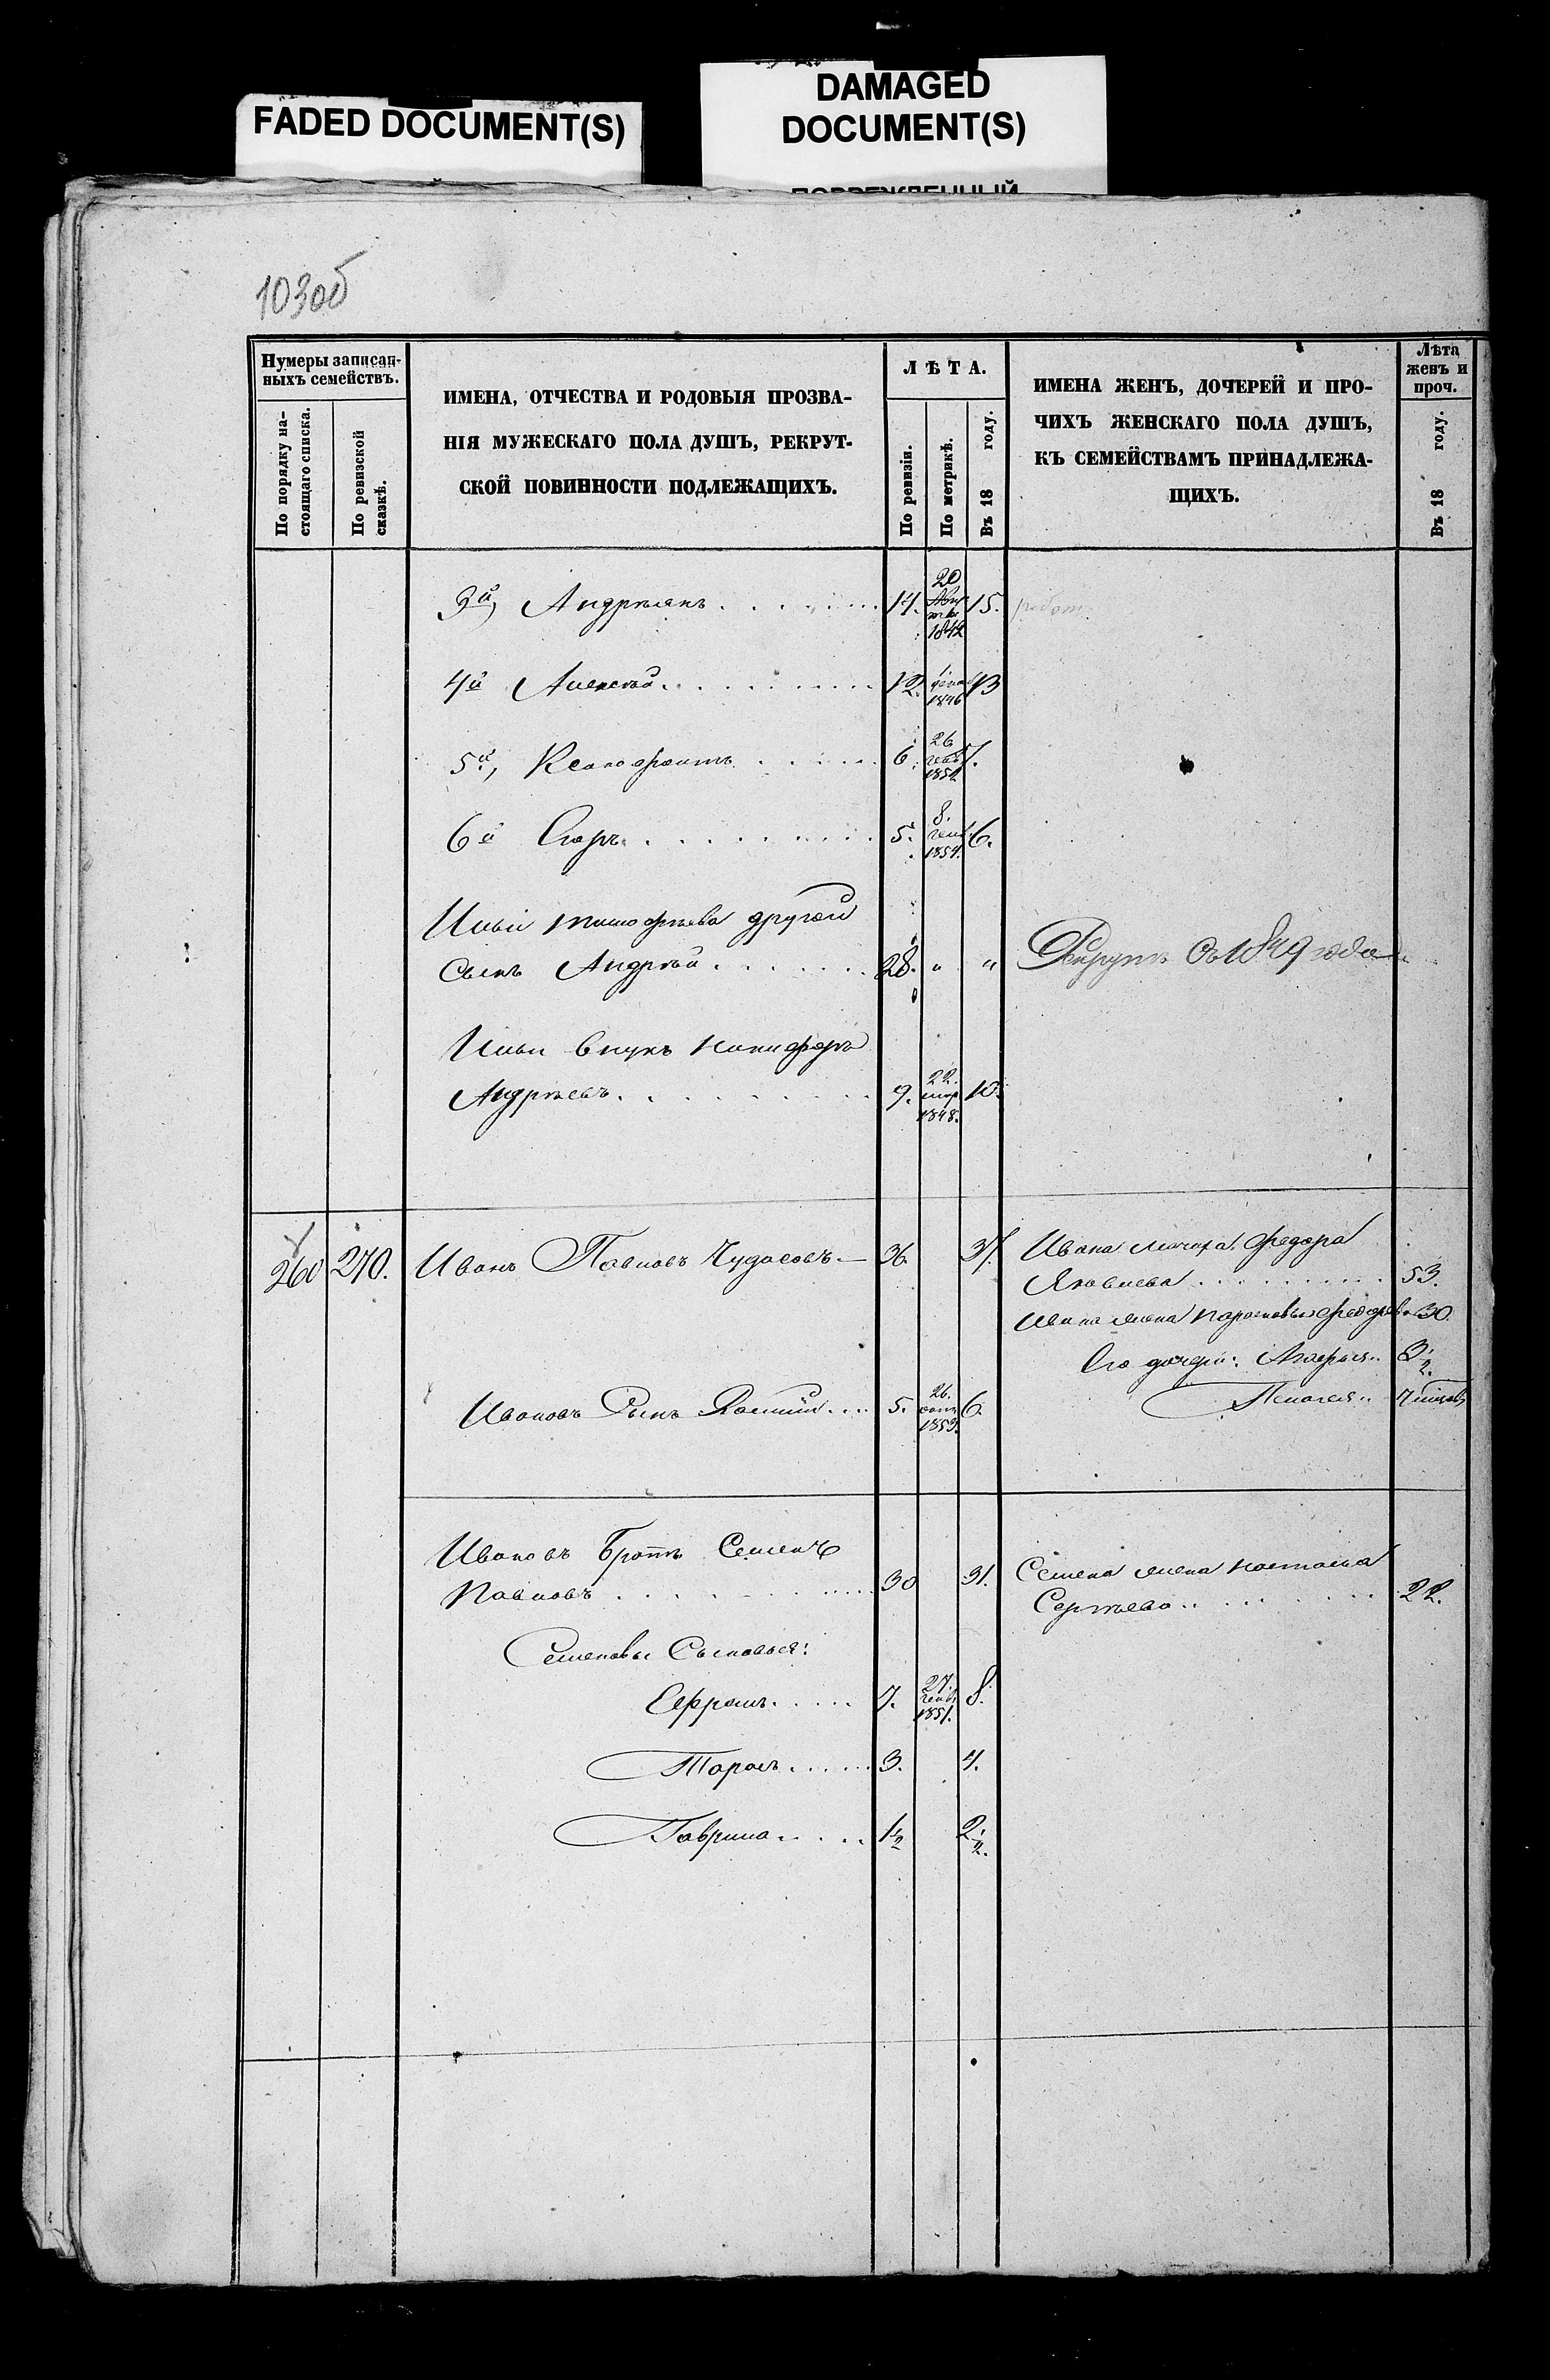 FADED DOCUMENT(S)
DAMAGED
DOCUMENT(S)
103об
Нумеры записан-
ныхъ семействъ.
По порядку на-
стоящаго списка.
По ревизской
сказкѣ.
ИМЕНА, ОТЧЕСТВА И РОДОВЫЯ ПРОЗВА-
НІЯ МУЖЕСКАГО ПОЛА ДУШЪ, РЕКРУТ-
СКОЙ ПОВИННОСТИ ПОДЛЕЖАЩИХЪ.
ЛѢТА.
По ревизіи.
По метрикѣ.
Въ 18 году.
ИМЕНА ЖЕНЪ, ДОЧЕРЕЙ И ПРО-
ЧИХЪ ЖЕНСКАГО ПОЛА ДУШЪ,
КЪ СЕМЕЙСТВАМЪ ПРИНАДЛЕЖА-
ЩИХЪ.
Лѣта
женъ и
проч.
Въ 18 году.
3й, Андреянъ 14. 20 1842 15.
4й Алексѣй 12. 1846 13
5й, Ксенофонтъ 6 26 7.
6й Егоръ 5. 8. 6.
Ильи Тимофѣева другой
сынъ Андрей 28. " " Рекрутъ съ 1849 года
Ильи внукъ Никифоръ
Андреевъ 9. 22. мар 1848. 10.
260 270. Иванъ Павловъ Чудасовъ 36. 37. Ивана мачиха Федора
Яковлева 53.
Ивана жена Парасковья Федорова 30.
Его дочери:
Пелагея
Ивановъ сынъ 5. 26. окт 1853. 6.
Ивановъ братъ Семенъ
Павловъ 30 31. Семена жена Настасья
Сергѣева 22.
Семеновы Сыновья:
Ефремъ 7. 27. генв 1851. 8.
Тарасъ 3. 4.
Гаврила 1½ 2½.